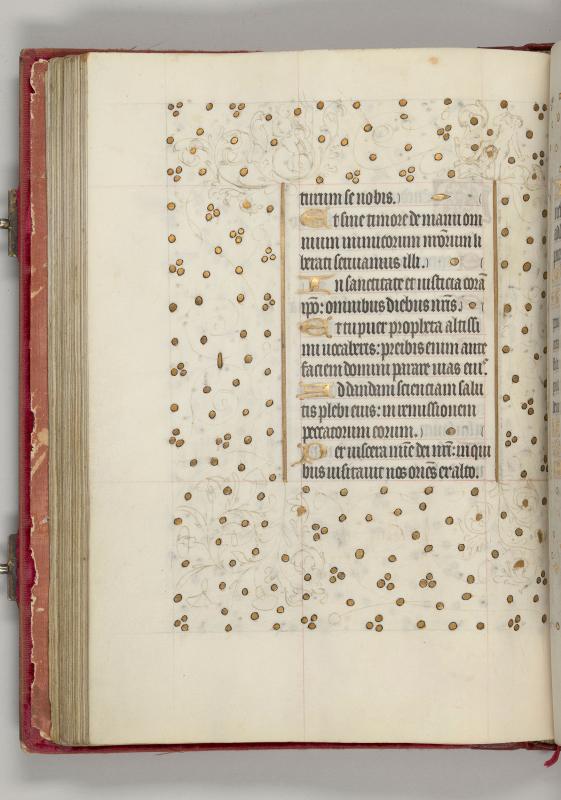 turum se nobis.
Et sine timore de manu om
nium inimicorum nrōrum li
berati seruiamus illi.
In sanctitate et iusticia corā
ipō: omnibus diebus nrīs.
Et tu puer propheta altissi
mi uocaberis: preibis enim ante
faciem domini parare uias eiꝰ.
Ad dandam scienciam salu
tis plebi eius: in remissionem
peccatorum eorum.
Per uiscera mīe dei nrī: in qui
bus uisitauit nos oriēs ex alto.